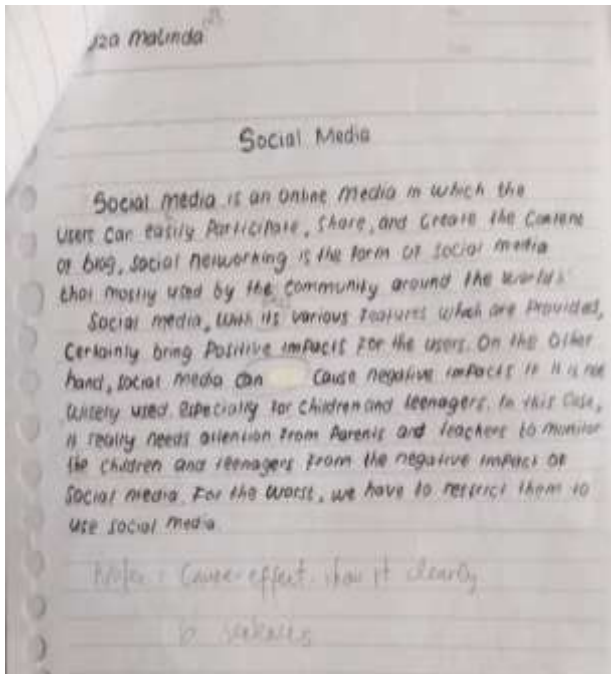 Malinda
Social Media
Social media is an online media in which the
users can easily Participate, Share, and Create the Content
of blog, social networking is the form of social media
that mostly used by the community around the world.
Social media, with its various features which are provided,
Certainly bring Positive impacts for the users. On the other
hand, social media can cause negative impacts if it is not
wisely used. Especially for children and teenagers. In this Case,
it really needs attention from Parents and teachers to monitor
the children and teenagers from the negative impact of
Social media. For the worst, we have to restrict them to
use social media.
Cause-effect. show it clearly